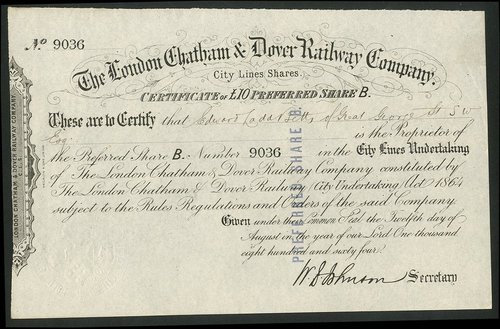 No 9036
The London Chatham & Dover Railway Company.
City Lines Shares.
Certificate of £10 Preferred Share B.
These are to Certify that Edward of Great George St S W
Esq. is the Proprietor of
the Preferred Share B. Number 9036 in the City Lines Undertaking
of The London Chatham & Dover Railway Company constituted by
The London Chatham & Dover Railway (City Undertaking) Act 1864
subject to the Rules Regulations and Orders of the said Company.
Given under the Common Seal the Twelfth day of
August in the year of our Lord One thousand
eight hundred and sixty four.
W. Johnson Secretary
PREFERRED SHARE B.
LONDON CHATHAM & DOVER RAILWAY COMPANY